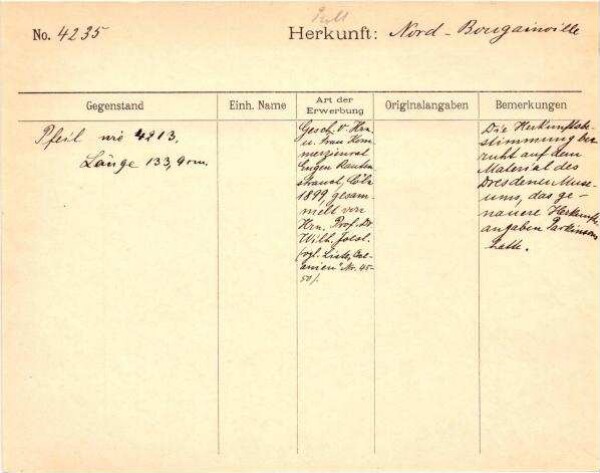 No. 4235
Herkunft: Nord-Bougainville
Gegenstand
Einh. Name
Art der Erwerbung
Originalangaben
Bemerkungen
Pfeil wie 4213.
Länge 133,9 cm.
Gesch. v. Hrn.
u. Frau Kom-
merzienrat
Eugen Rauten-
strauch, Cöln
1899, gesam-
melt von
Hrn. Prof. Dr.
Wilh. Joest.
(vgl. Liste, Oze-
anien" Nr. 45-
50).
Die Herkunftsbe-
stimmung be-
ruht auf dem
Material des
Dresdener Muse-
ums, das ge-
nauere Herkunfts-
angaben Parkinsons
hatte.